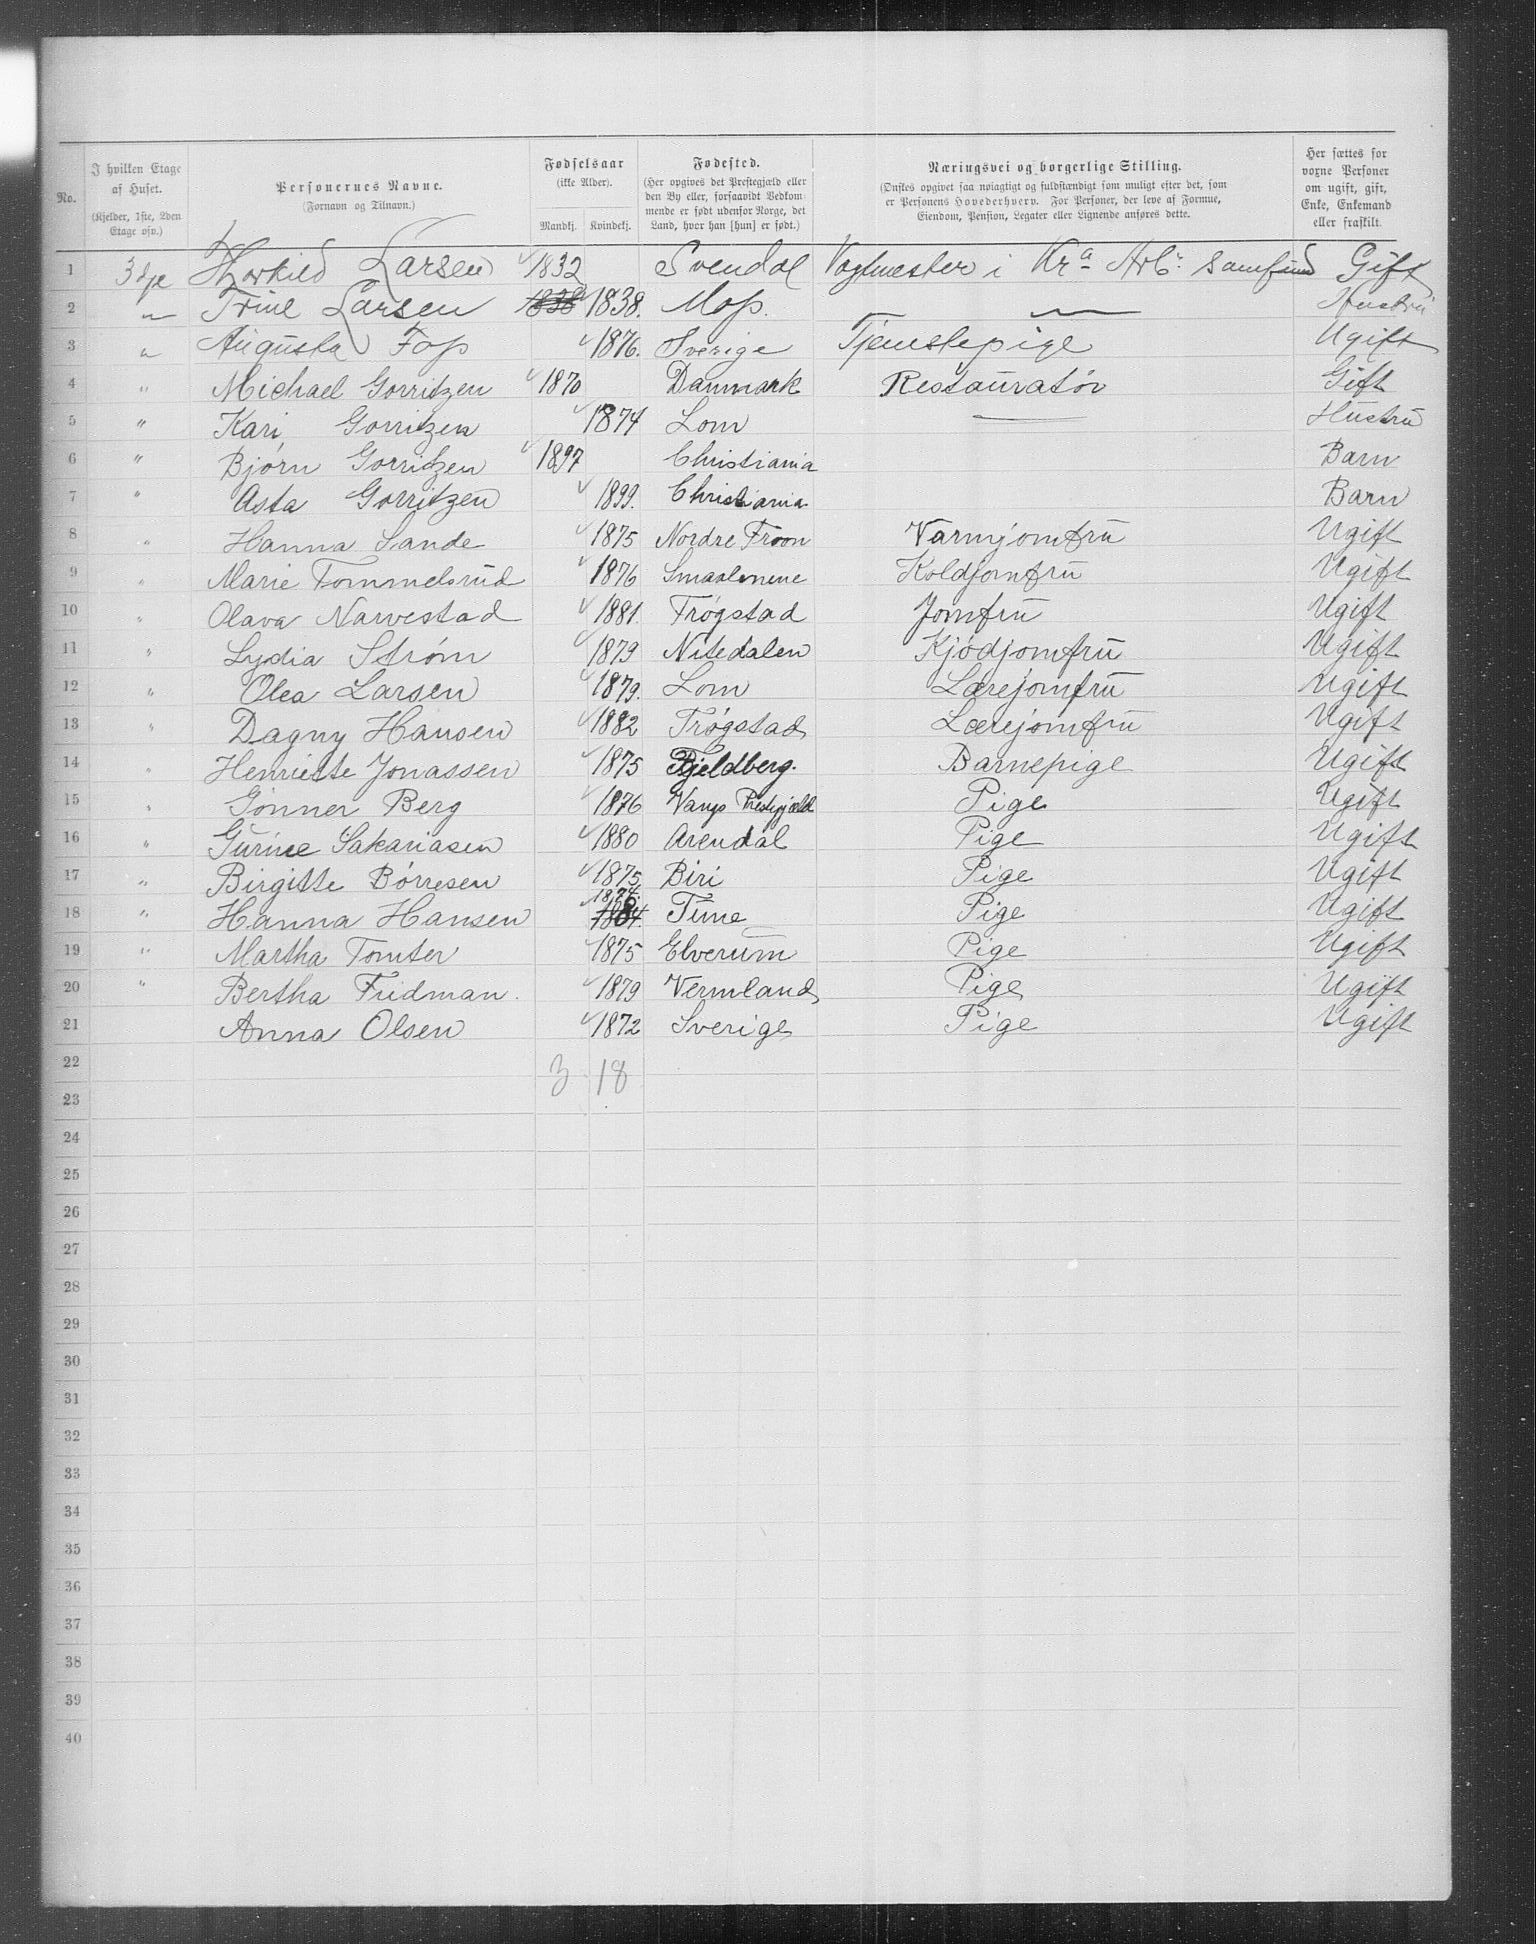 No.
I hvilken Etage af Huset.
(Kjelder, 1ste, 2den Etage osv.)
Personernes Navne.
(Fornavn og Tilnavn.)
Fødselsaar
(ikke Alder).
Mandkj. Kvindekj.
Fødested.
(Her opgives det Prestegjæld eller den By eller, forsaavidt Vedkommende er født udenfor Norge, det Land, hvor han [hun] er født.)
Næringsvei og borgerlige Stilling.
(Ønskes opgivet saa nøiagtigt og fuldstændigt som muligt efter det, som er Personens Hovederhverv. For Personer, der leve af Formue, Eiendom, Pension, Legater eller Lignende anføres dette.
Her sættes for voxne Personer om ugift, gift, Enke, Enkemand eller fraskilt.
1 3dje Thorkild Larsen 1832 Svendal Vagtmester i Kra Arbr samfund Gift
2 " Trine Larsen 1838 1838. Moss. — Hustru
3 " Augusta Foss 1876. Sverige Tjenstepige Ugift
4 " Michael Gorritzen 1870 Danmark Restauratør Gift
5 " Kari Gorritzen 1874 Lom — Hustru
6 " Bjørn Gorritzen 1897 Christiania Barn
7 " Asta Gorritzen 1899. Christiania Barn
8 " Hanna Sande 1875 Nordre Froon Varmjomfru Ugift
9 " Marie Tommelsrud 1876 Smaalenene Koldjomfru Ugift
10 " Olava Narvestad 1881. Trøgstad Jomfru Ugift
11 " Lydia Strøm 1879 Nitedalen Kjødjomfru Ugift
12 " Olea Larsen 1879. Lom Lærejomfru Ugift
13 " Dagny Hansen 1882 Trøgstad Lærejomfru Ugift
14 " Henriette Jonassen 1875 Fjeldberg. Barnepige Ugift
15 " Gønner Berg 1876 Vangs Prestegjæld Pige Ugift
16 " Gurine Sakariasen 1880 Arendal Pige Ugift
17 " Birgitte Børresen 1875 Biri Pige Ugift
18 " Hanna Hansen 1874 Tune Pige Ugift
19 " Martha Tomter 1875 Elverum Pige Ugift
20 " Bertha Fridman. 1879 Vermland Pige Ugift
21 Anna Olsen 1872 Sverige Pige Ugift
22 3 18
23
24
25
26
27
28
29
30
31
32
33
34
35
36
37
38
39
40